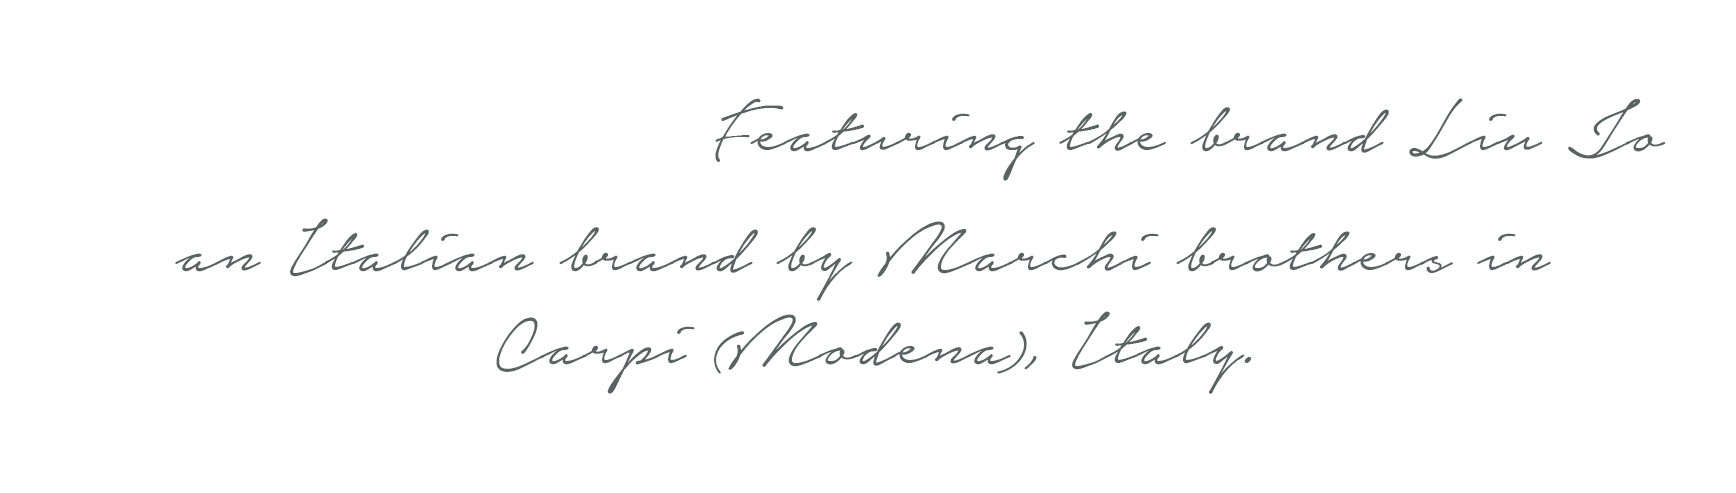 Featuring the brand Liu Jo
an Italian brand by Marchi brothers in
Carpi (Modena), Italy.